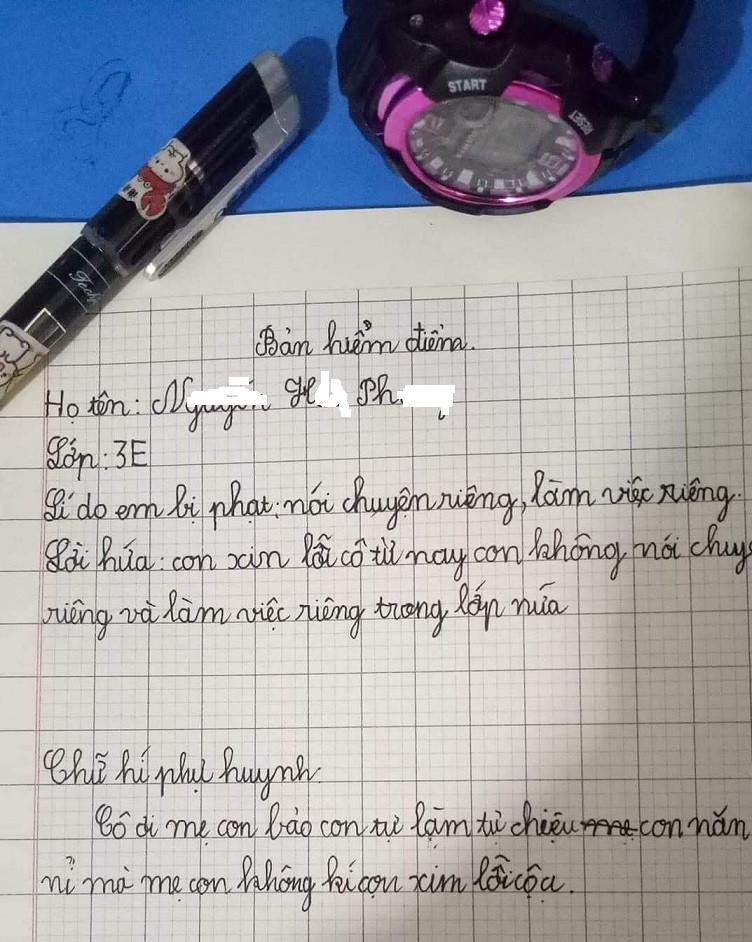 START
RESET
Bản kiểm điểm.
Họ tên: Nguyễn H Ph
Lớp: 3E
Lí do em bị phạt: nói chuyện riêng, làm việc riêng.
Lời hứa: con xin lỗi cô từ nay con không nói chuy
riêng và làm việc riêng trong lớp nữa
Chữ kí phụ huynh:
Cô ơi mẹ con bảo con tự làm tự chiệu mẹ con năn
nỉ mà mẹ con không kí con xin lỗi cô ạ.